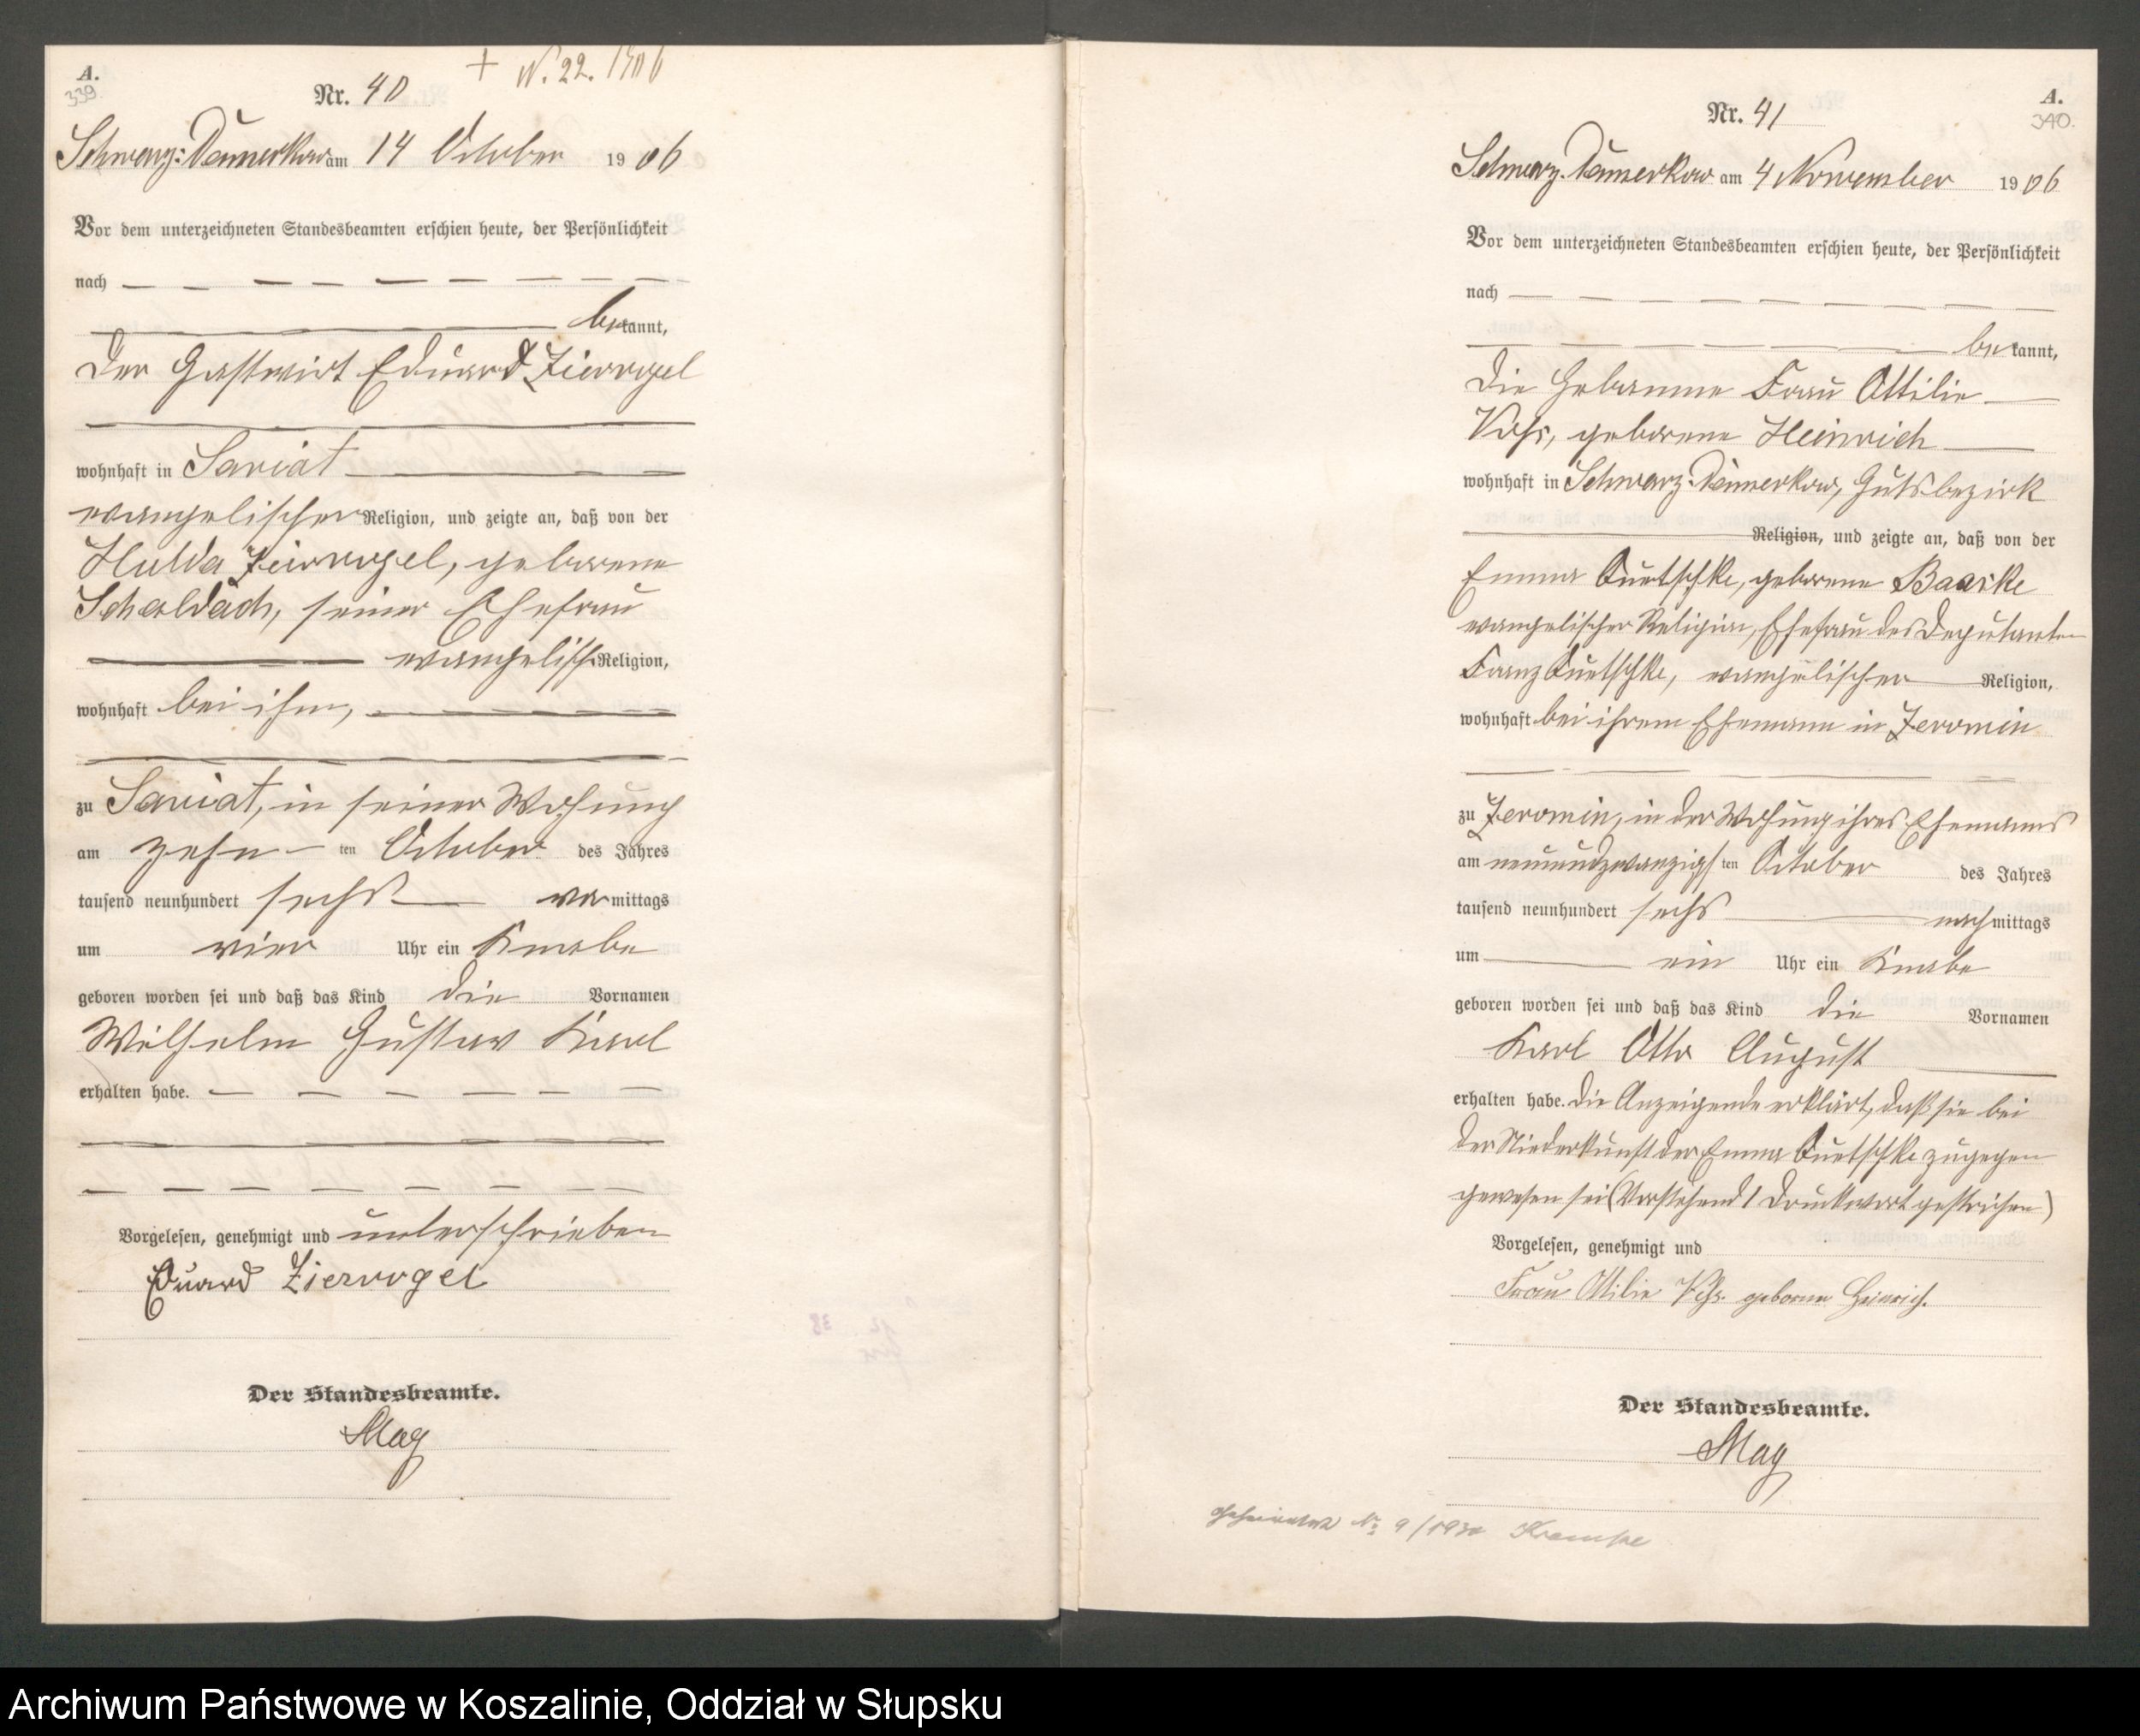 A.
339.
Nr. 40
+ N. 22. 1906
Schwarz-Damerkow am 14 October 1906
Vor dem unterzeichneten Standesbeamten erschien heute, der Persönlichkeit
nach
bekannt,
der Gastwirt Eduard Ziervogel
wohnhaft in Saviat
evangelischer Religion, und zeigte an, daß von der
Hulda Ziervogel, geborene
Schaldach, seiner Ehefrau
evangelisch Religion,
wohnhaft bei ihm,
zu Saviat, in seiner Wohnung
am zehn ten October des Jahres
tausend neunhundert sechs vormittags
um vier Uhr ein Knabe
geboren worden sei und daß das Kind die Vornamen
Wilhelm Gustav Karl
erhalten habe.
Vorgelesen, genehmigt und unterschrieben
Eduard Ziervogel
Der Standesbeamte.
Mag
A.
340.
Nr. 41
Schwarz-Damerkow am 4 November 1906
Vor dem unterzeichneten Standesbeamten erschien heute, der Persönlichkeit
nach
bekannt,
die Hebamme Frau Ottilie
Voss, geborene Heinrich
wohnhaft in Schwarz-Damerkow, Gutsbezirk
Religion, und zeigte an, daß von der
Emma Quetschke, geborene Baaske
evangelischer Religion, Ehefrau des Deputanten
Franz Quetschke, evangelischer Religion,
wohnhaft bei ihrem Ehemann in Jeromin
zu Jeromin, in der Wohnung ihres Ehemanns
am neunundzwanzigsten October des Jahres
tausend neunhundert sechs nachmittags
um ein Uhr ein Knabe
geboren worden sei und daß das Kind die Vornamen
Karl Otto August
erhalten habe. Die Anzeigende erklärt, daß sie bei
der Niederkunft der Emma Quetschke zugegen
gewesen sei (Vorstehend 1 Druckwort gestrichen)
Vorgelesen, genehmigt und
Frau Ottilie Voss geborne Heinrich.
Der Standesbeamte.
Mag
geheiratet No 9/1930
Archiwum Państwowe w Koszalinie, Oddział w Słupsku